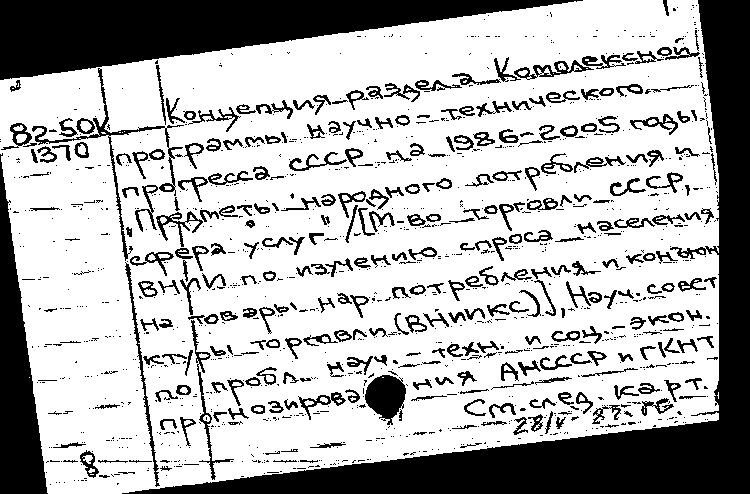 82-50К
1370
Концепция раздела Комплексной
программы научно-технического
прогресса СССР на 1986-2005 годы
"Предметы народного потребления и
сфера услуг" /[М-во торговли СССР,
ВНИИ по изучению спроса населения
на товары нар. потребления и конъюн
ктуры торговли (ВНИИКС)], Науч. совет
по пробл. науч.-техн. и соц.-экон.
прогнозирования АНСССР и ГКНТ
См. след. карт.
8